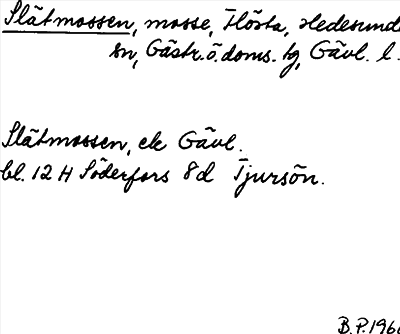 Slätmossen, mosse, Hösta, Hedesund
sn, Gästr. ö. doms. tg, Gävl. l.
Slätmossen, ek Gävl.
bl. 12 H Söderfors 8d Tjursön.
B.P. 196